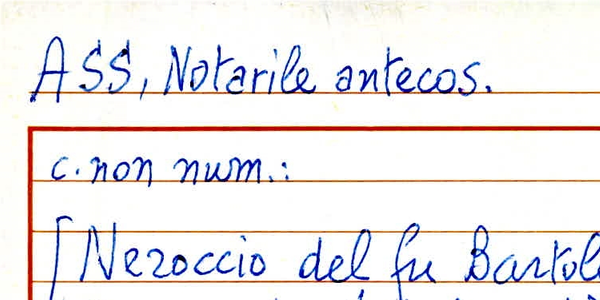 ASS, Notarile antecos.
c. non num.:
[Neroccio del fu Bartol